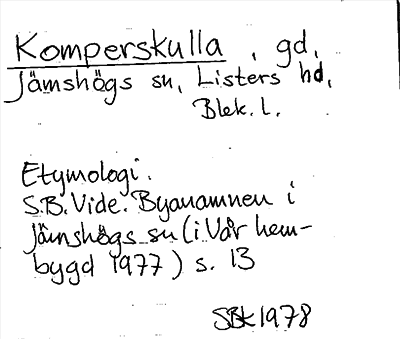 Komperskulla, gd,
Jämshögs sn, Listers hd,
Blek. l.
Etymologi.
S.B. Vide. Byanamnen i
Jämshögs sn (i Vår hem-
bygd 1977) s. 13
SBk 1978